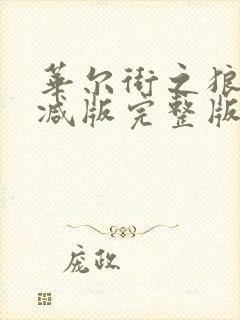 华尔街之狼
减版完整版
庞政